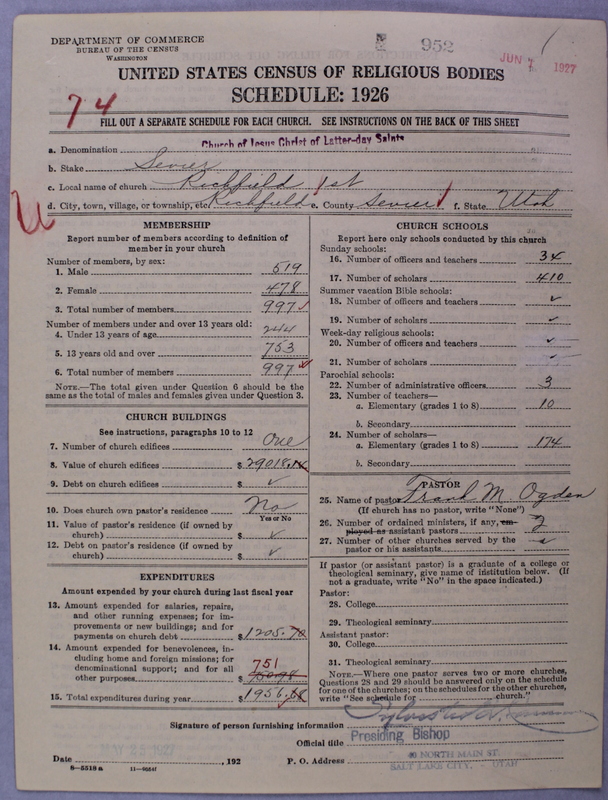 DEPARTMENT OF COMMERCE
BUREAU OF THE CENSUS
WASHINGTON
952
JUN 7 1927
UNITED STATES CENSUS OF RELIGIOUS BODIES
SCHEDULE: 1926
74
FILL OUT A SEPARATE SCHEDULE FOR EACH CHURCH. SEE INSTRUCTIONS ON THE BACK OF THIS SHEET
a. Denomination Church of Jesus Christ of Latter-day Saints
b. Stake Sevier
c. Local name of church Richfield 1st
d. City, town, village, or township, etc. Richfield e. County Sevier f. State Utah
MEMBERSHIP
Report number of members according to definition of
member in your church
Number of members, by sex:
1. Male 519
2. Female 478
3. Total number of members 997
Number of members under and over 13 years old:
4. Under 13 years of age 244
5. 13 years old and over 753
6. Total number of members 997
NOTE.—The total given under Question 6 should be the
same as the total of males and females given under Question 3.
CHURCH BUILDINGS
See instructions, paragraphs 10 to 12
7. Number of church edifices One
8. Value of church edifices $ 29018.14
9. Debt on church edifices $ ✓
10. Does church own pastor's residence? No
Yes or No
11. Value of pastor's residence (if owned by
church) $ ✓
12. Debt on pastor's residence (if owned by
church) $ ✓
EXPENDITURES
Amount expended by your church during last fiscal year
13. Amount expended for salaries, repairs,
and other running expenses; for im-
provements or new buildings; and for
payments on church debt $ 1205.70
14. Amount expended for benevolences, in-
cluding home and foreign missions; for
denominational support; and for all 751
other purposes $
15. Total expenditures during year $ 1956.68
CHURCH SCHOOLS
Report here only schools conducted by this church
Sunday schools:
16. Number of officers and teachers 34
17. Number of scholars 410
Summer vacation Bible schools:
18. Number of officers and teachers ✓
19. Number of scholars ✓
Week-day religious schools:
20. Number of officers and teachers ✓
21. Number of scholars ✓
Parochial schools:
22. Number of administrative officers 3
23. Number of teachers—
a. Elementary (grades 1 to 8) 10
b. Secondary
24. Number of scholars—
a. Elementary (grades 1 to 8) 174
b. Secondary
PASTOR
25. Name of pastor Frank M. Ogden
(If church has no pastor, write "None")
26. Number of ordained ministers, if any, em-
ployed as assistant pastors 2
27. Number of other churches served by the
pastor or his assistants ✓
If pastor (or assistant pastor) is a graduate of a college or
theological seminary, give name of institution below. (If
not a graduate, write "No" in the space indicated.)
Pastor:
28. College
29. Theological seminary
Assistant pastor:
30. College
31. Theological seminary
NOTE.—Where one pastor serves two or more churches,
Questions 28 and 29 should be answered only on the schedule
for one of the churches; on the schedules for the other churches,
write "See schedule for church."
Signature of person furnishing information
Official title Presiding Bishop
MAY 25 1927
Date , 192 P. O. Address 40 NORTH MAIN ST.
SALT LAKE CITY, UTAH
8—5518a